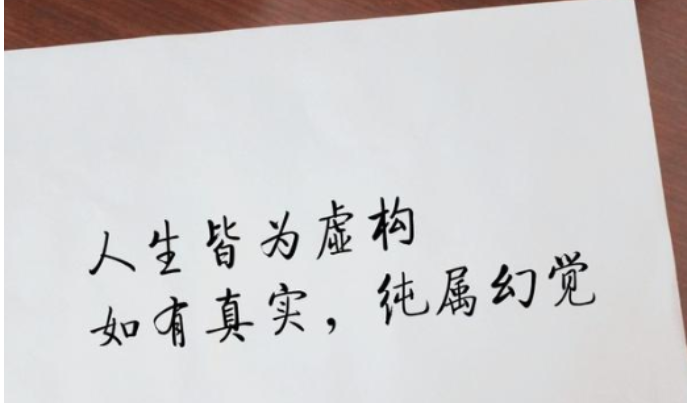 人生皆为虚构
如有真实，纯属幻觉